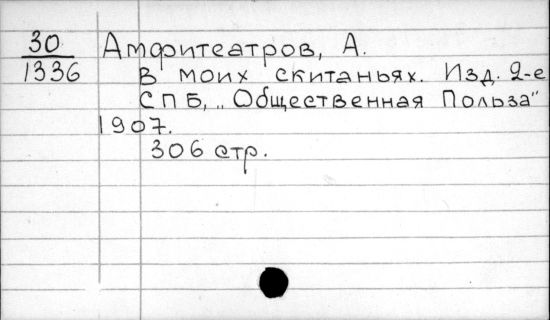 30 Амфитеатров, А.
1336 В моих скитаньях. Изд. 2-е
СПБ, „Общественная Польза"
1907.
306 стр.